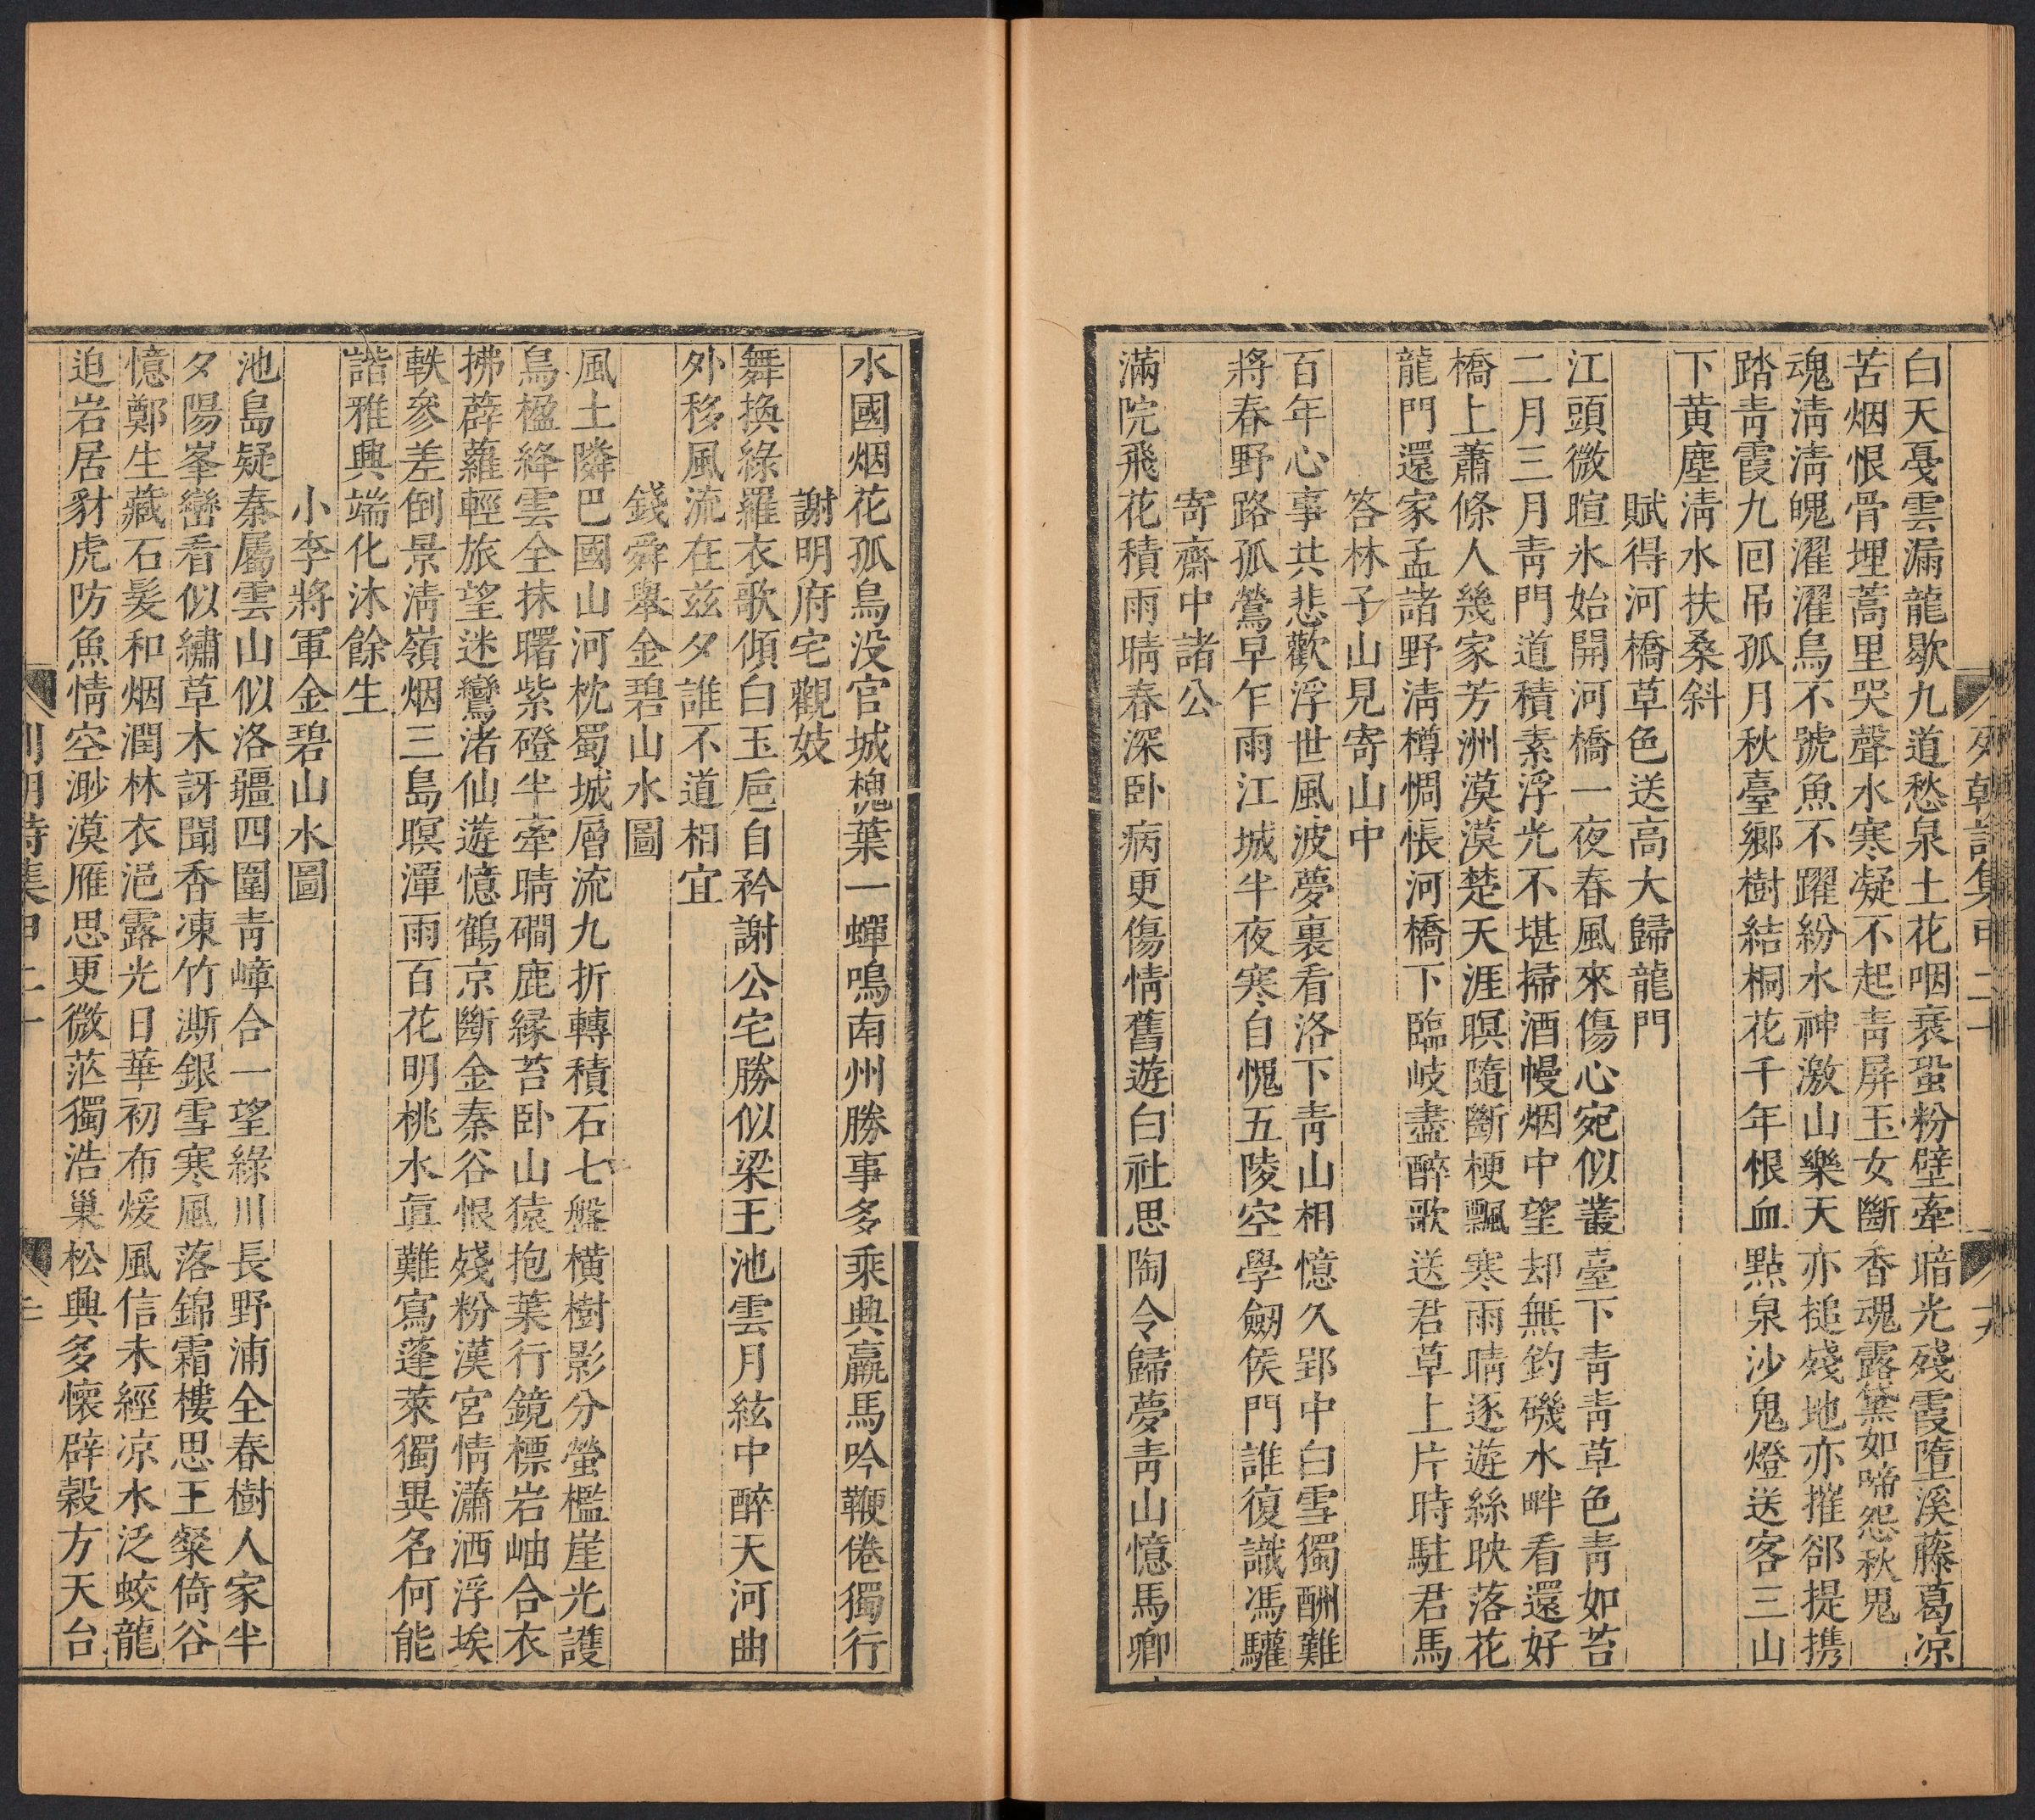 白天戞雲漏龍歇九道愁泉土花咽衰蛩粉壁牽暗光殘霞墮溪藤葛凉
苦烟恨骨埋蒿里哭聲水寒凝不起青屏玉女斷香魂露黛如啼怨秋鬼
魂淸淸魄濯濯鳥不號魚不躍紛水神激山樂天亦搥殘地亦摧郤提携
踏靑霞九回吊孤月秋臺鄉樹結桐花千年恨血點泉沙鬼燈送客三山
下黃塵淸水扶桑斜
賦得河橋草色送高大歸龍門
江頭微暄氷始開河橋一夜春風來傷心宛似叢臺下靑靑草色靑如苔
二月三月靑門道積素浮光不堪掃酒幔烟中望却無釣磯水畔看還好
橋上蕭條人幾家芳洲漠漠楚天涯暝隨斷梗飄寒雨晴逐遊絲映落花
龍門還家孟諸野淸樽惆悵河橋下臨岐盡醉歌送君草上片時駐君馬
答林子山見寄山中
百年心事共悲歡浮世風波夢裏看洛下靑山相憶久郢中白雪獨酬難
將春野路孤鶯早乍雨江城半夜寒自愧五陵空學劒侯門誰復識馮驩
寄齋中諸公
滿院飛花積雨晴春深卧病更傷情舊遊白社思陶令歸夢靑山憶馬卿
水國烟花孤鳥没官城槐葉一蟬鳴南州勝事多乘興羸馬吟鞭倦獨行
謝明府宅觀妓
舞換綠羅衣歌傾白玉巵自矜謝公宅勝似梁王池雲月絃中醉天河曲
外移風流在兹夕誰不道相宜
錢舜舉金碧山水圖
風土隣巴國山河枕蜀城層流九折轉積石七盤橫樹影分螢檻崖光護
鳥楹絳雲全抹曙紫磴半牽晴磵鹿緣苔卧山猿抱葉行鏡標岩岫合衣
拂薜蘿輕旅望迷鸞渚仙遊憶鶴京斷金秦谷恨殘粉漢宮情瀟洒浮埃
軼參差倒景淸嶺烟三島暝潭雨百花明桃水眞難寫蓬萊獨異名何能
諧雅興端化沐餘生
小李將軍金碧山水圖
池島疑秦屬雲山似洛疆四圍靑嶂合一望綠川長野浦全春樹人家半
夕陽峯巒看似繡草木訝聞香凍竹澌銀雪寒風落錦霜樓思王粲倚谷
憶鄭生藏石髮和烟潤林衣浥露光日華初布煖風信未經凉水泛蛟龍
迫岩居豺虎防魚情空渺漠雁思更微茫獨浩巢松興多懷辟穀方天台